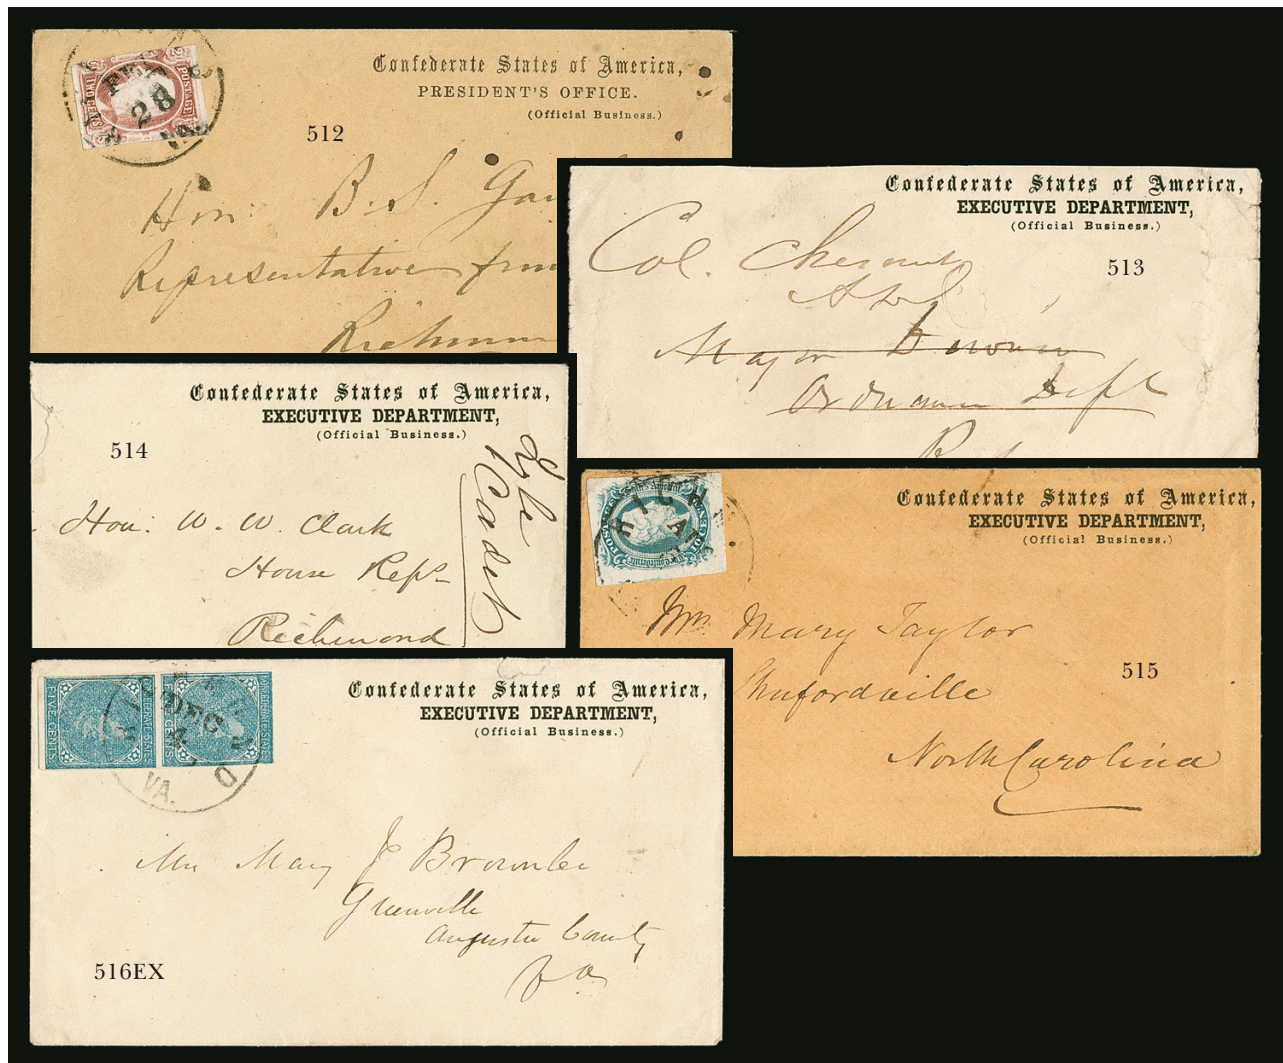 Confederate States of America,
PRESIDENT'S OFFICE.
(Official Business.)
TWO CENTS
POSTAGE
28
VA.
512
Hon: B. S.
Representative from
Confederate States of America,
EXECUTIVE DEPARTMENT,
(Official Business.)
513
Col. Chesnut
Major
Ordnance Dept
Confederate States of America,
EXECUTIVE DEPARTMENT,
(Official Business.)
514
Hon: W. W. Clark
House Reps
Richmond
Confederate States of America,
EXECUTIVE DEPARTMENT,
(Official Business.)
515
Mrs Mary Taylor
Shufordville
North Carolina
FIVE CENTS
RICHMOND
DEC
VA.
Confederate States of America,
EXECUTIVE DEPARTMENT,
(Official Business.)
516EX
Mrs Mary J Brownlee
Greenville
Augusta County
Va